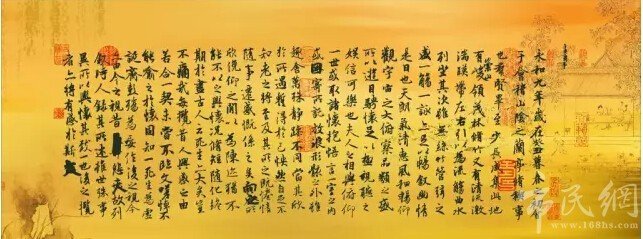 永和九年歲在癸丑暮春之初會
于會稽山陰之蘭亭脩稧事
也群賢畢至少長咸集此地
有崇山峻領茂林脩竹又有清流激
湍暎帶左右引以為流觴曲水
列坐其次雖無絲竹管弦之
盛一觴一詠亦足以暢敘幽情
是日也天朗氣清惠風和暢仰
觀宇宙之大俯察品類之盛
所以遊目騁懷足以極視聽之
娛信可樂也夫人之相與俯仰
一世或取諸懷抱悟言一室之內
或因寄所託放浪形骸之外雖
趣舍萬殊靜躁不同當其欣
於所遇暫得於己快然自足不
知老之將至及其所之既惓情
隨事遷感慨係之矣向之所
欣俛仰之閒以為陳迹猶不
能不以之興懷況脩短隨化終
期於盡古人云死生亦大矣豈
不痛哉每攬昔人興感之由
若合一契未嘗不臨文嗟悼不
能喻之於懷固知一死生為虛
誕齊彭殤為妄作後之視今
亦由今之視昔悲夫故列
敘時人錄其所述雖世殊事
異所以興懷其致一也後之攬
者亦將有感於斯文
市民網
www.168hs.com